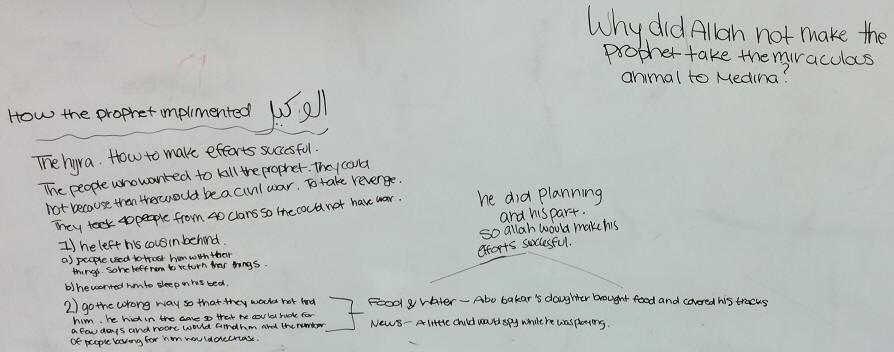 Why did Allah not make the
prophet take the miraculous
animal to Medina?
How the prophet implimented الوكيل
The hijra. How to make efforts succesful.
The people who wanted to kill the prophet. They could
not because then there would be a civil war. To take revenge.
They took 40 people from 40 clans so the could not have war.
1) he left his cousin behind.
a) people used to trust him with their
things. So he left him to return their things.
b) he wanted him to sleep in his bed.
2) go the wrong way so that they would not find
him. he hid in the cave so that he could hide for
a few days and noone would find him and the number
of people looking for him would decrease.
he did planning
and his part.
so allah would make his
efforts succesful.
Food & Water - Abu bakar's daughter brought food and covered his tracks
News - A little child would spy while he was playing.